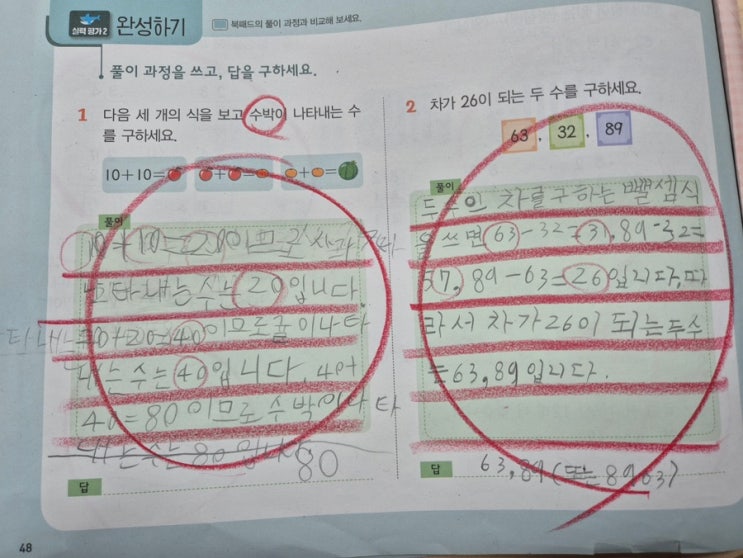 실력 평가 2 완성하기
북패드의 풀이 과정과 비교해 보세요.
풀이 과정을 쓰고, 답을 구하세요.
1 다음 세 개의 식을 보고 수박이 나타내는 수
를 구하세요.
10+10=🍎 🍎+🍎=🍊 🍊+🍊=🍉
풀이
10+10=20이므로 사과가
나타내는 수는 20입니다.
20+20=40이므로 귤이 나타
내는 수는 40입니다. 40+
40=80이므로 수박이 나타
내는 수는 80입니다
80
답
2 차가 26이 되는 두 수를 구하세요.
63, 32, 89
풀이
두 수의 차를 구하는 뺄셈식
을 쓰면 63-32=31, 89-32=
57, 89-63=26입니다. 따
라서 차가 26이 되는 두 수
는 63, 89입니다.
답 63, 89 (또는 89, 63)
48